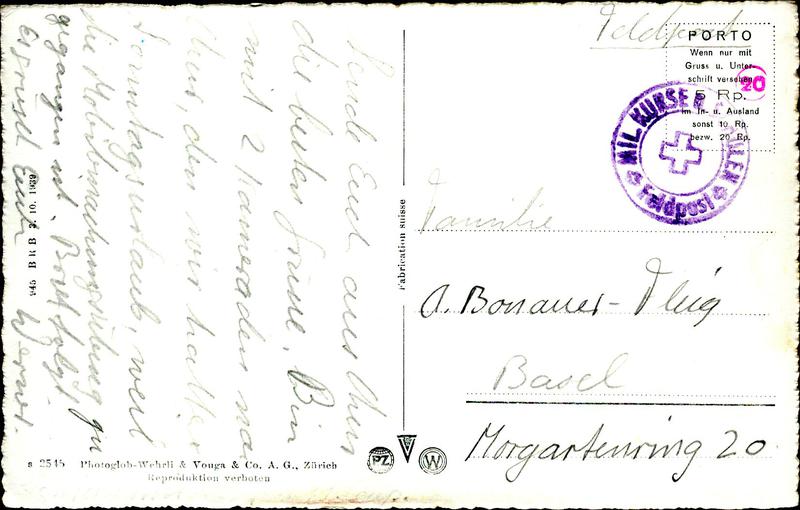 Sende Euch aus Chur
die besten Grüsse. Bin
mit 2 Kameraden na
Chur, den wir hatten
Sonntagsurlaub, weil
die Mobilmachungsübung zu
gegangen ist. Brief folgt.
Es grüsst Euch Werner
945 B R B 3. 10. 1939
s 2545 Photoglob-Wehrli & Vouga & Co. A. G., Zürich
Reproduktion verboten
Fabrication suisse
PZ
W
Feldpost
PORTO
Wenn nur mit
Gruss u. Unter-
schrift versehen
5 Rp.
im In- u. Ausland
sonst 10 Rp.
bezw. 20 Rp.
20
MIL. KURSE
Feldpost
Familie
A. Bonauer-Flüg
Basel
Morgartenring 20